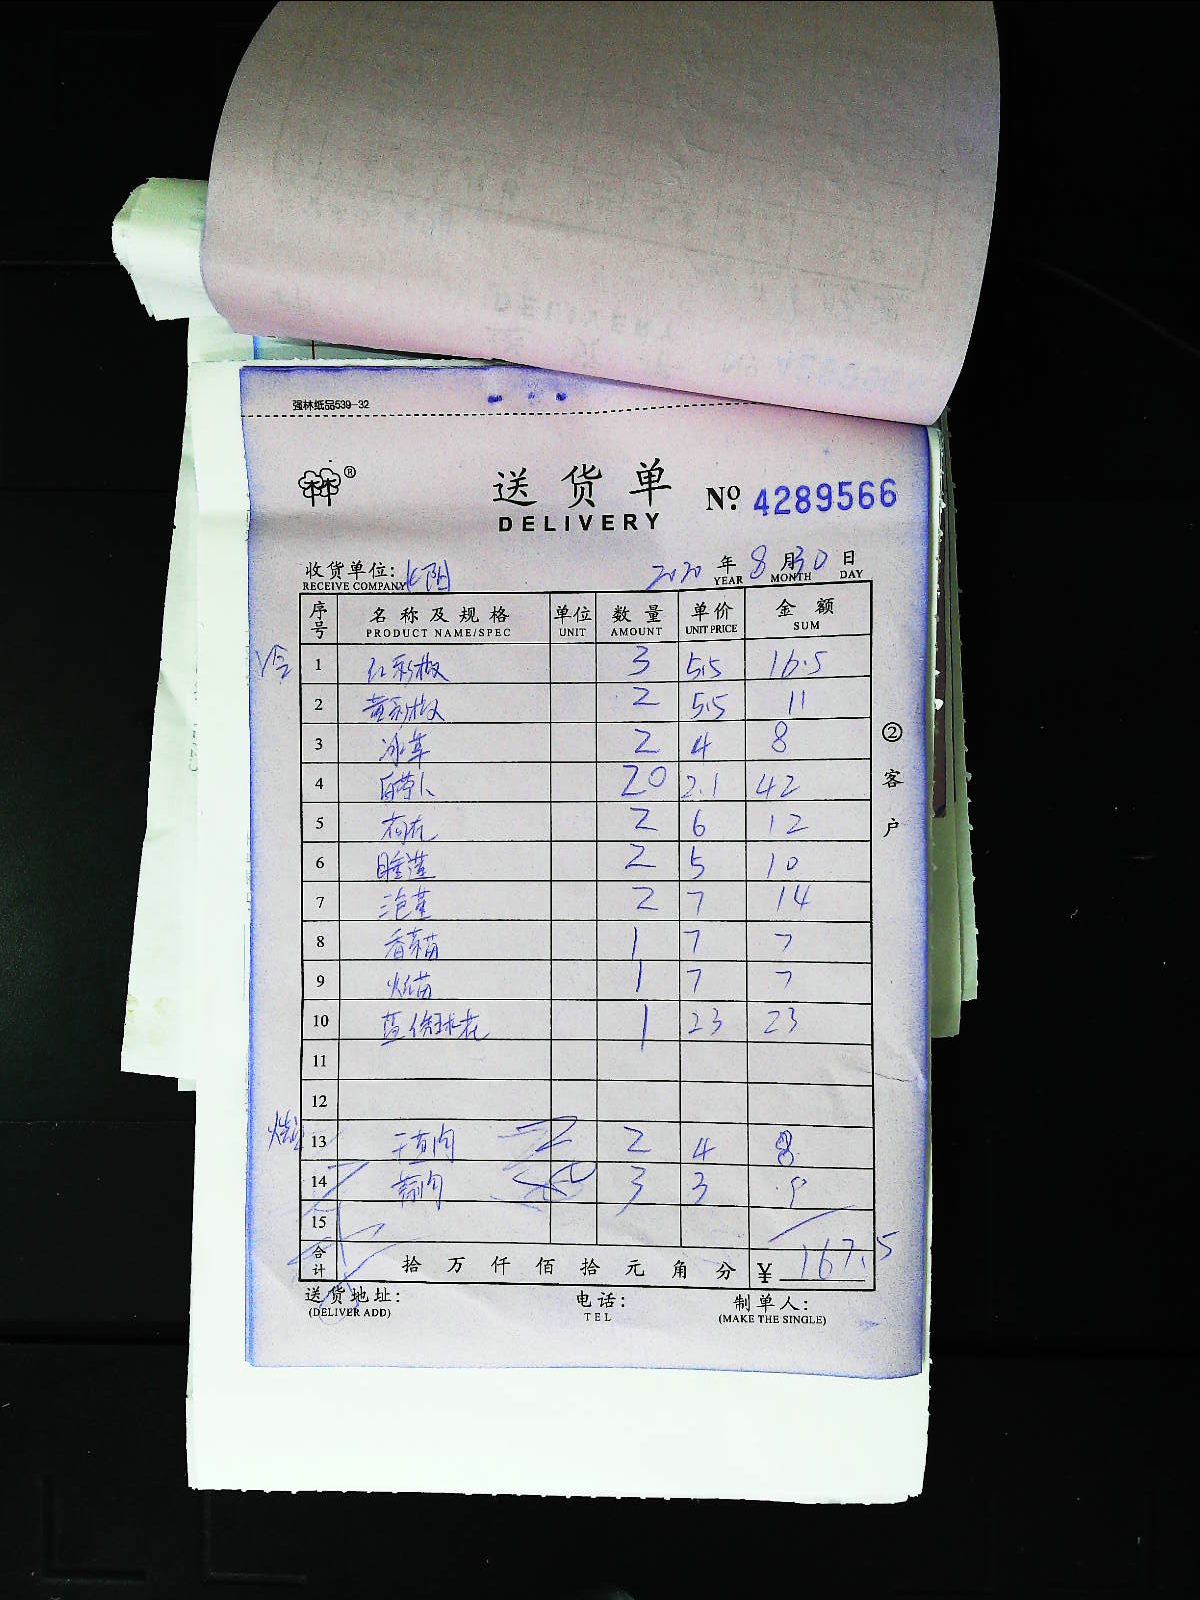 强林纸品539-32
林®
送货单 № 4289566
DELIVERY
收货单位: 2020 年 8 月 30 日
RECEIVE COMPANY YEAR MONTH DAY
序号 名称及规格 单位 数量 单价 金额
PRODUCT NAME/SPEC UNIT AMOUNT UNIT PRICE SUM
冷 1 红彩椒 3 5.5 16.5
2 黄彩椒 2 5.5 11
3 冰草 2 4 8
4 白萝卜 20 2.1 42
5 2 6 12
6 睡莲 2 5 10
7 2 7 14
8 香菜苗 1 7 7
9 1 7 7
10 1 23 23
11
12
13 2 4 8
14 3 3 9
15
合计 拾 万 仟 佰 拾 元 角 分 ¥ 167.5
送货地址: 电话: 制单人:
(DELIVER ADD) TEL (MAKE THE SINGLE)
②客户